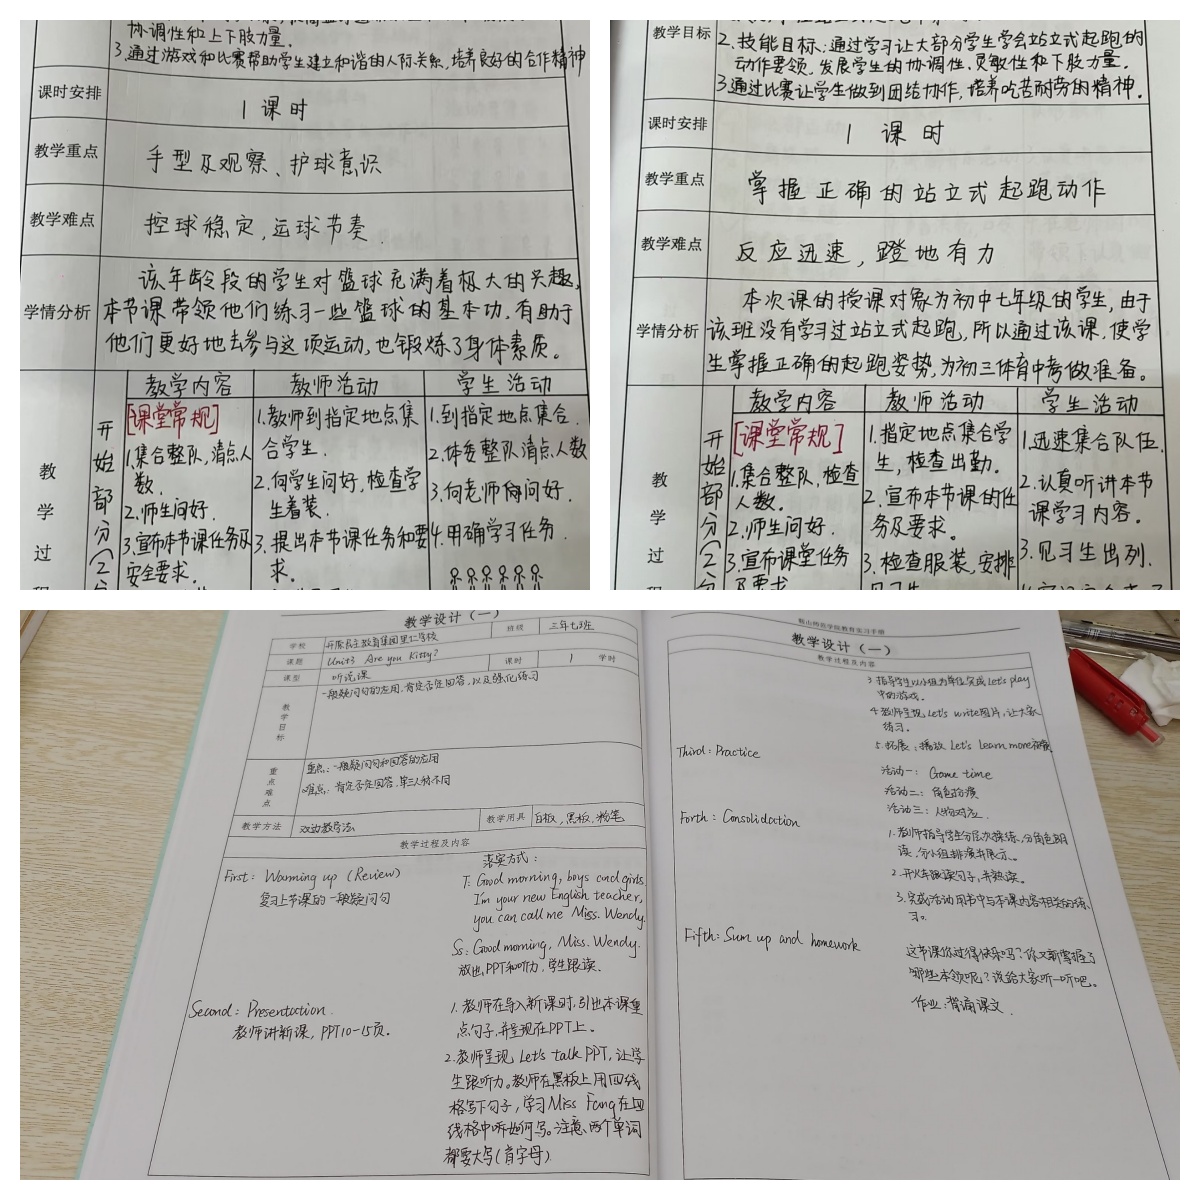 协调性和上下肢力量.
3.通过游戏和比赛帮助学生建立和谐的人际关系,培养良好的合作精神
课时安排
1 课时
教学重点
手型及观察、护球意识
教学难点
控球稳定,运球节奏.
学情分析
该年龄段的学生对篮球充满着极大的兴趣,
本节课带领他们练习一些篮球的基本功,有助于
他们更好地去参与这项运动,也锻炼了身体素质。
教学内容 教师活动 学生活动
教 学 过
开始部分(2分
[课堂常规]
1.集合整队,清点人
数.
2.师生问好.
3.宣布本节课任务及
安全要求.
1.教师到指定地点集
合学生.
2.向学生问好,检查学
生着装.
3.提出本节课任务和要
求.
1.到指定地点集合.
2.体委整队清点人数
3.向老师问好.
4.明确学习任务.
教学目标
2.技能目标:通过学习让大部分学生学会站立式起跑的
动作要领,发展学生的协调性、灵敏性和下肢力量.
3.通过比赛让学生做到团结协作,培养吃苦耐劳的精神.
课时安排
1 课时
教学重点
掌握正确的站立式起跑动作
教学难点
反应迅速,蹬地有力
学情分析
本次课的授课对象为初中七年级的学生,由于
该班没有学习过站立式起跑,所以通过该课,使学
生掌握正确的起跑姿势,为初三体育中考做准备。
教学内容 教师活动 学生活动
教 学 过
开始部分(2分
[课堂常规]
1.集合整队,检查
人数.
2.师生问好.
3.宣布课堂任务
及要求
1.指定地点集合学
生,检查出勤。
2.宣布本节课的任
务及要求。
3.检查服装,安排
见习生
1.迅速集合队伍.
2.认真听讲本节
课学习内容。
3.见习生出列.
教学设计(一)
学校 开原民主教育集团里仁学校 班级 三年七班
课题 Unit3 Are you Kitty? 课时 1 学时
课型 听说课
教学目标
一般疑问句的应用,肯定否定回答,以及强化练习
重点难点
重点:一般疑问句和回答的应用
难点:肯定否定回答,第三人称不同
教学方法 双动教学法 教学用具 白板,黑板,粉笔
教学过程及内容
First: Warming up (Review)
复习上节课的一般疑问句
落实方式:
T: Good morning, boys and girls.
I'm your new English teacher,
you can call me Miss. Wendy.
Ss: Good morning, Miss. Wendy.
放出PPT和听力,学生跟读.
Second: Presentation.
教师讲新课,PPT10-15页.
1.教师在导入新课时,引出本课重
点句子,并呈现在PPT上。
2.教师呈现Let's talk PPT,让学
生跟听力。教师在黑板上用四线
格写下句子,学习Miss Fang在四
线格中听如何写。注意:两个单词
都要大写(首字母)
鞍山师范学院教育实习手册
教学设计(一)
教学过程及内容
3.指导学生以小组为单位完成Let's play
中的游戏。
4.教师呈现Let's write图片,让大家
练习。
5.拓展:播放Let's learn more视频
Third: Practice
活动一: Game time
活动二:角色扮演
活动三:人物对应.
Forth: Consolidation
1.教师指导学生分层次操练,分角色朗
读,分小组排演并展示。
2.开火车跟读句子,并熟读。
3.完成活动用书中与本课内容相关的练
习。
Fifth: Sum up and homework
这节课你过得快乐吗?你又新掌握了
哪些本领呢?说给大家听一听吧。
作业:背诵课文.